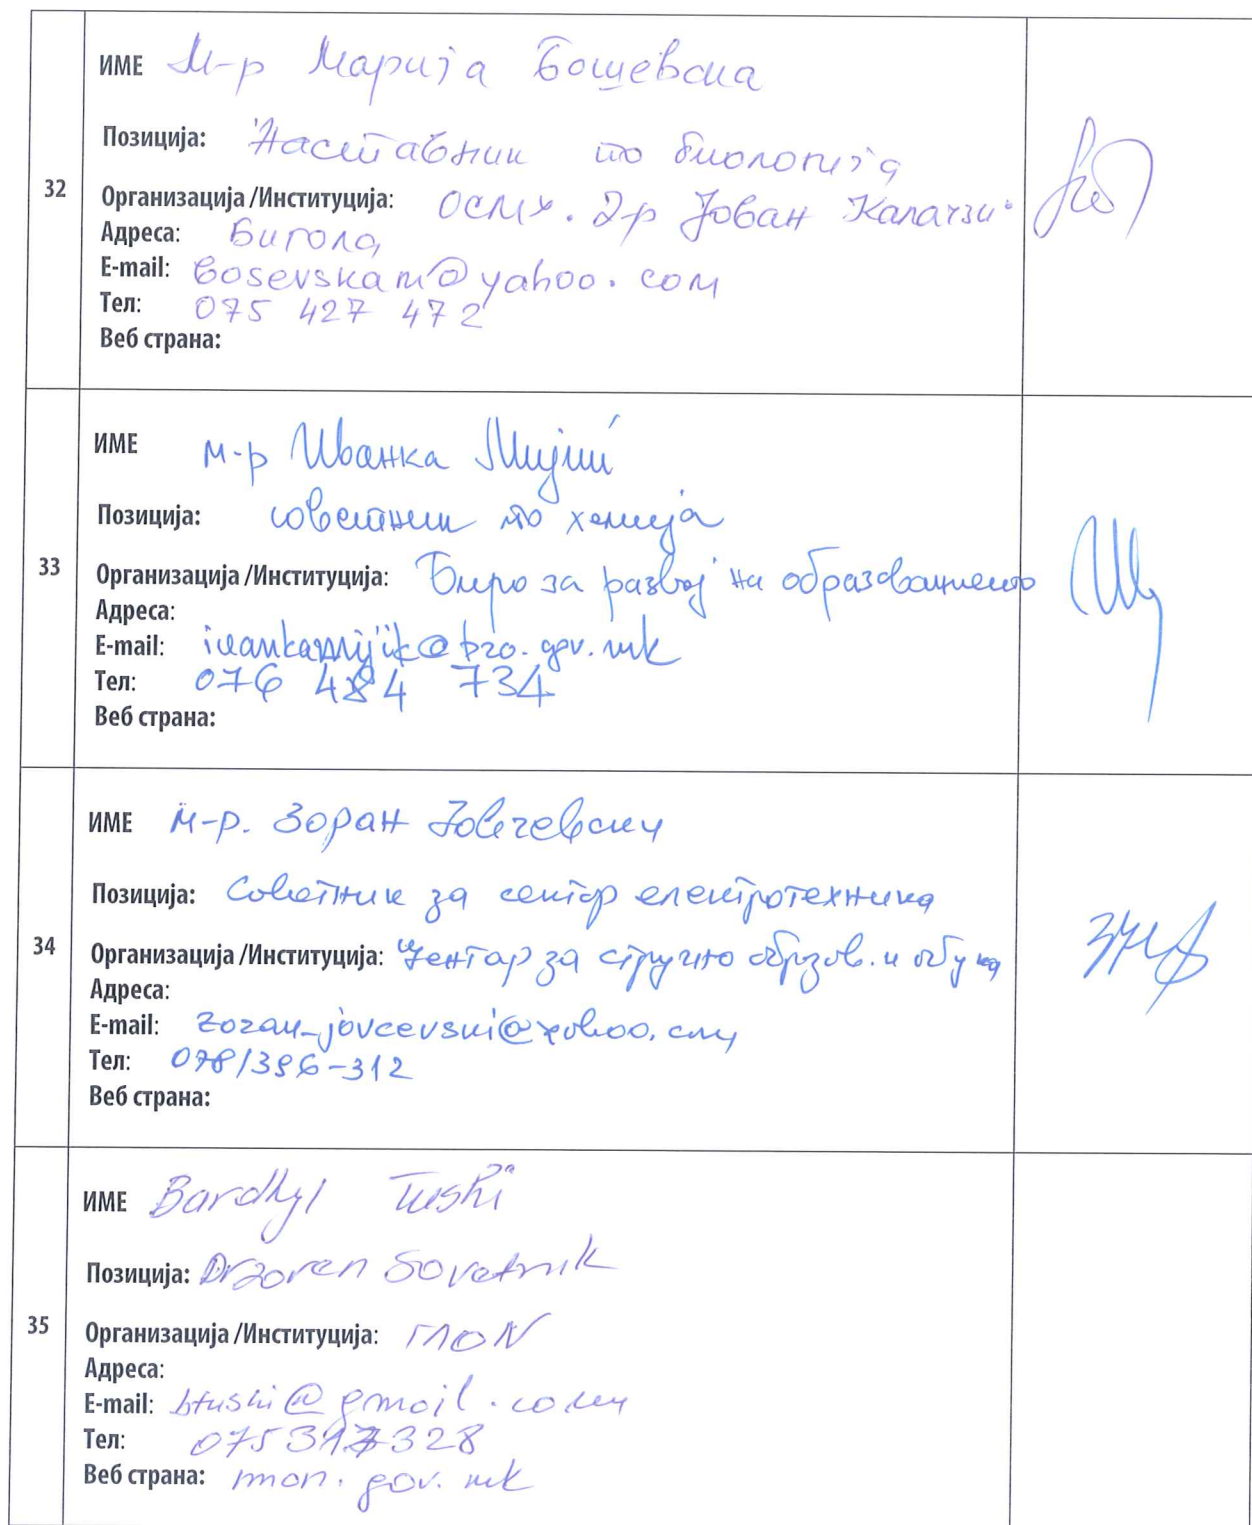 32
ИМЕ М-р Марија Бошевска
Позиција: Наставник по биологија
Организација/Институција: ОСМУ. Д-р Јован Калаузи
Адреса: Битола
E-mail: bosevskam@yahoo.com
Тел: 075 427 472
Веб страна:
33
ИМЕ м-р Иванка Мијиќ
Позиција: советник по хемија
Организација/Институција: Биро за развој на образованието
Адреса:
E-mail: ivankamijik@bro.gov.mk
Тел: 076 484 734
Веб страна:
34
ИМЕ М-р. Зоран Јовчевски
Позиција: Советник за сектор електротехника
Организација/Институција: Центар за стручно образов. и обука
Адреса:
E-mail: zoran_jovcevski@yahoo.com
Тел: 078/396-312
Веб страна:
35
ИМЕ Bardhyl Tushi
Позиција: Drzaven Sovetnik
Организација/Институција: MON
Адреса:
E-mail: btushi@gmail.com
Тел: 075317328
Веб страна: mon.gov.mk